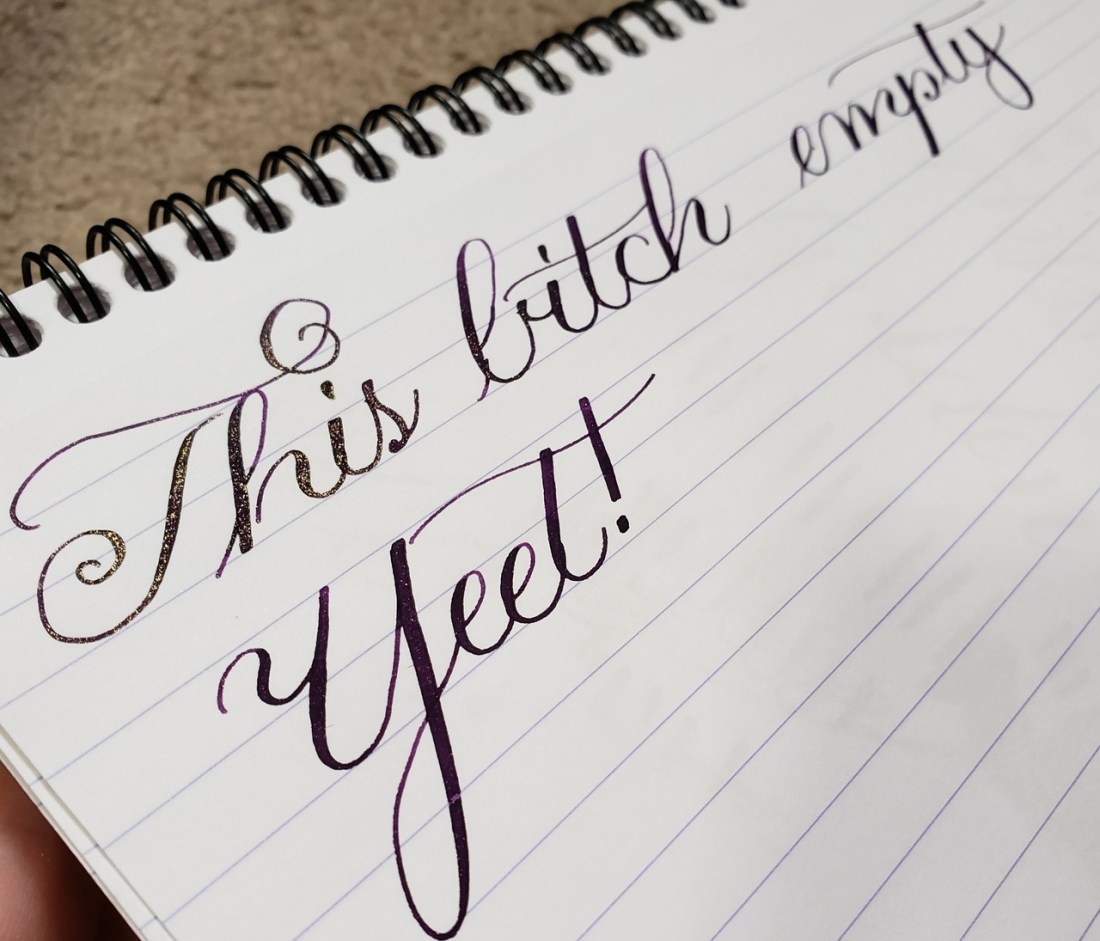 This bitch empty
Yeet!